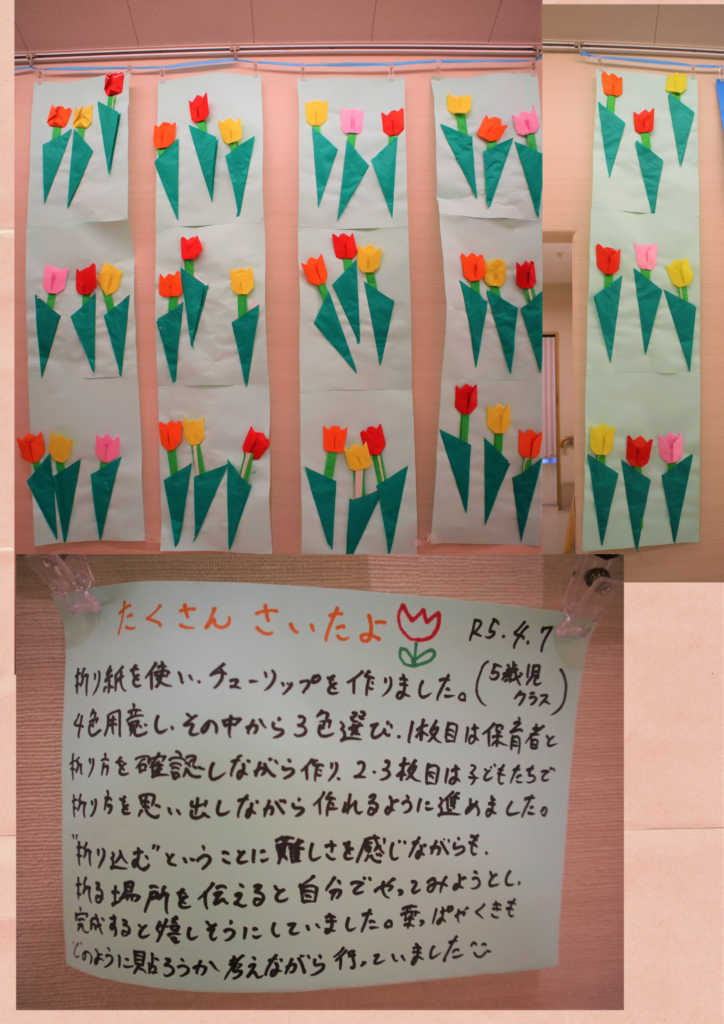 たくさん さいたよ R5.4.7
折り紙を使い、チューリップを作りました。(5歳児クラス)
4色用意し、その中から3色選び、1枚目は保育者と
折り方を確認しながら作り、2・3枚目は子どもたちで
折り方を思い出しながら作れるように進めました。
"折り込む"ということに難しさを感じながらも、
折る場所を伝えると自分でやってみようとし、
完成すると嬉しそうにしていました。葉っぱやくきも
どのように貼ろうか考えながら行っていました